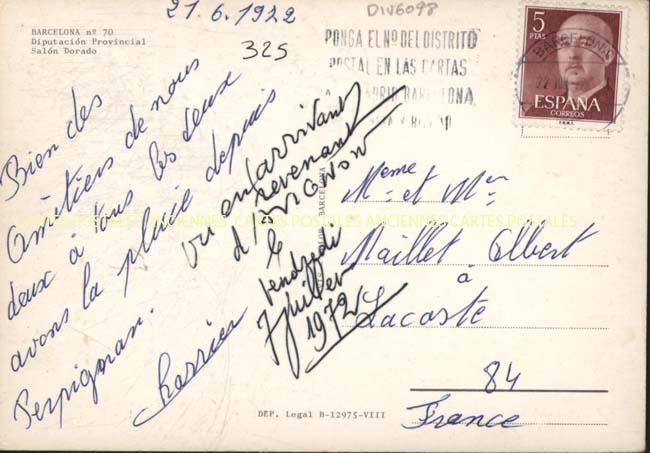 21.6.1922
DIV6098
325
BARCELONA nº 70
Diputación Provincial
Salón Dorado
PONGA EL Nº DEL DISTRITO
POSTAL EN LAS CARTAS
BARCELONA
5
PTAS
ESPAÑA
CORREOS
BARCELONA
Bien des
Amitiers de nous
deux à vous les deux
avons la pluie depuis
Perpignan.
Vu en arrivant
revenant
d'AVIGNON
le
Vendredi
7 Juillet
1972
Meme et Mr
Maillet Albert
à
Lacoste
84
France
CARTES POSTALES ANCIENNES CARTES POSTALES ANCIENNES CARTES POSTALES
DEP. Legal B-12975-VIII